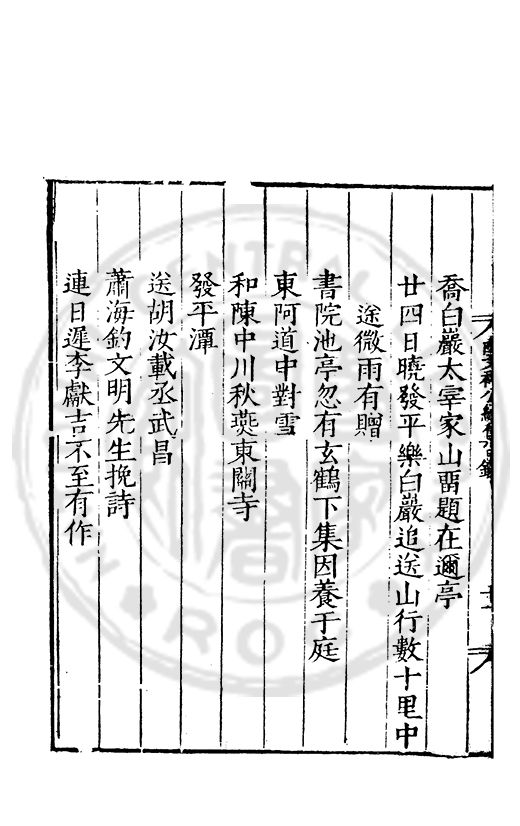 喬白巖太宰家山畱題在邇亭
廿四日曉發平樂白巖追送山行數十里中
途微雨有贈
書院池亭忽有玄鶴下集因養于庭
東阿道中對雪
和陳中川秋燕東關寺
發平潭
送胡汝載丞武昌
蕭海釣文明先生挽詩
連日遲李獻吉不至有作